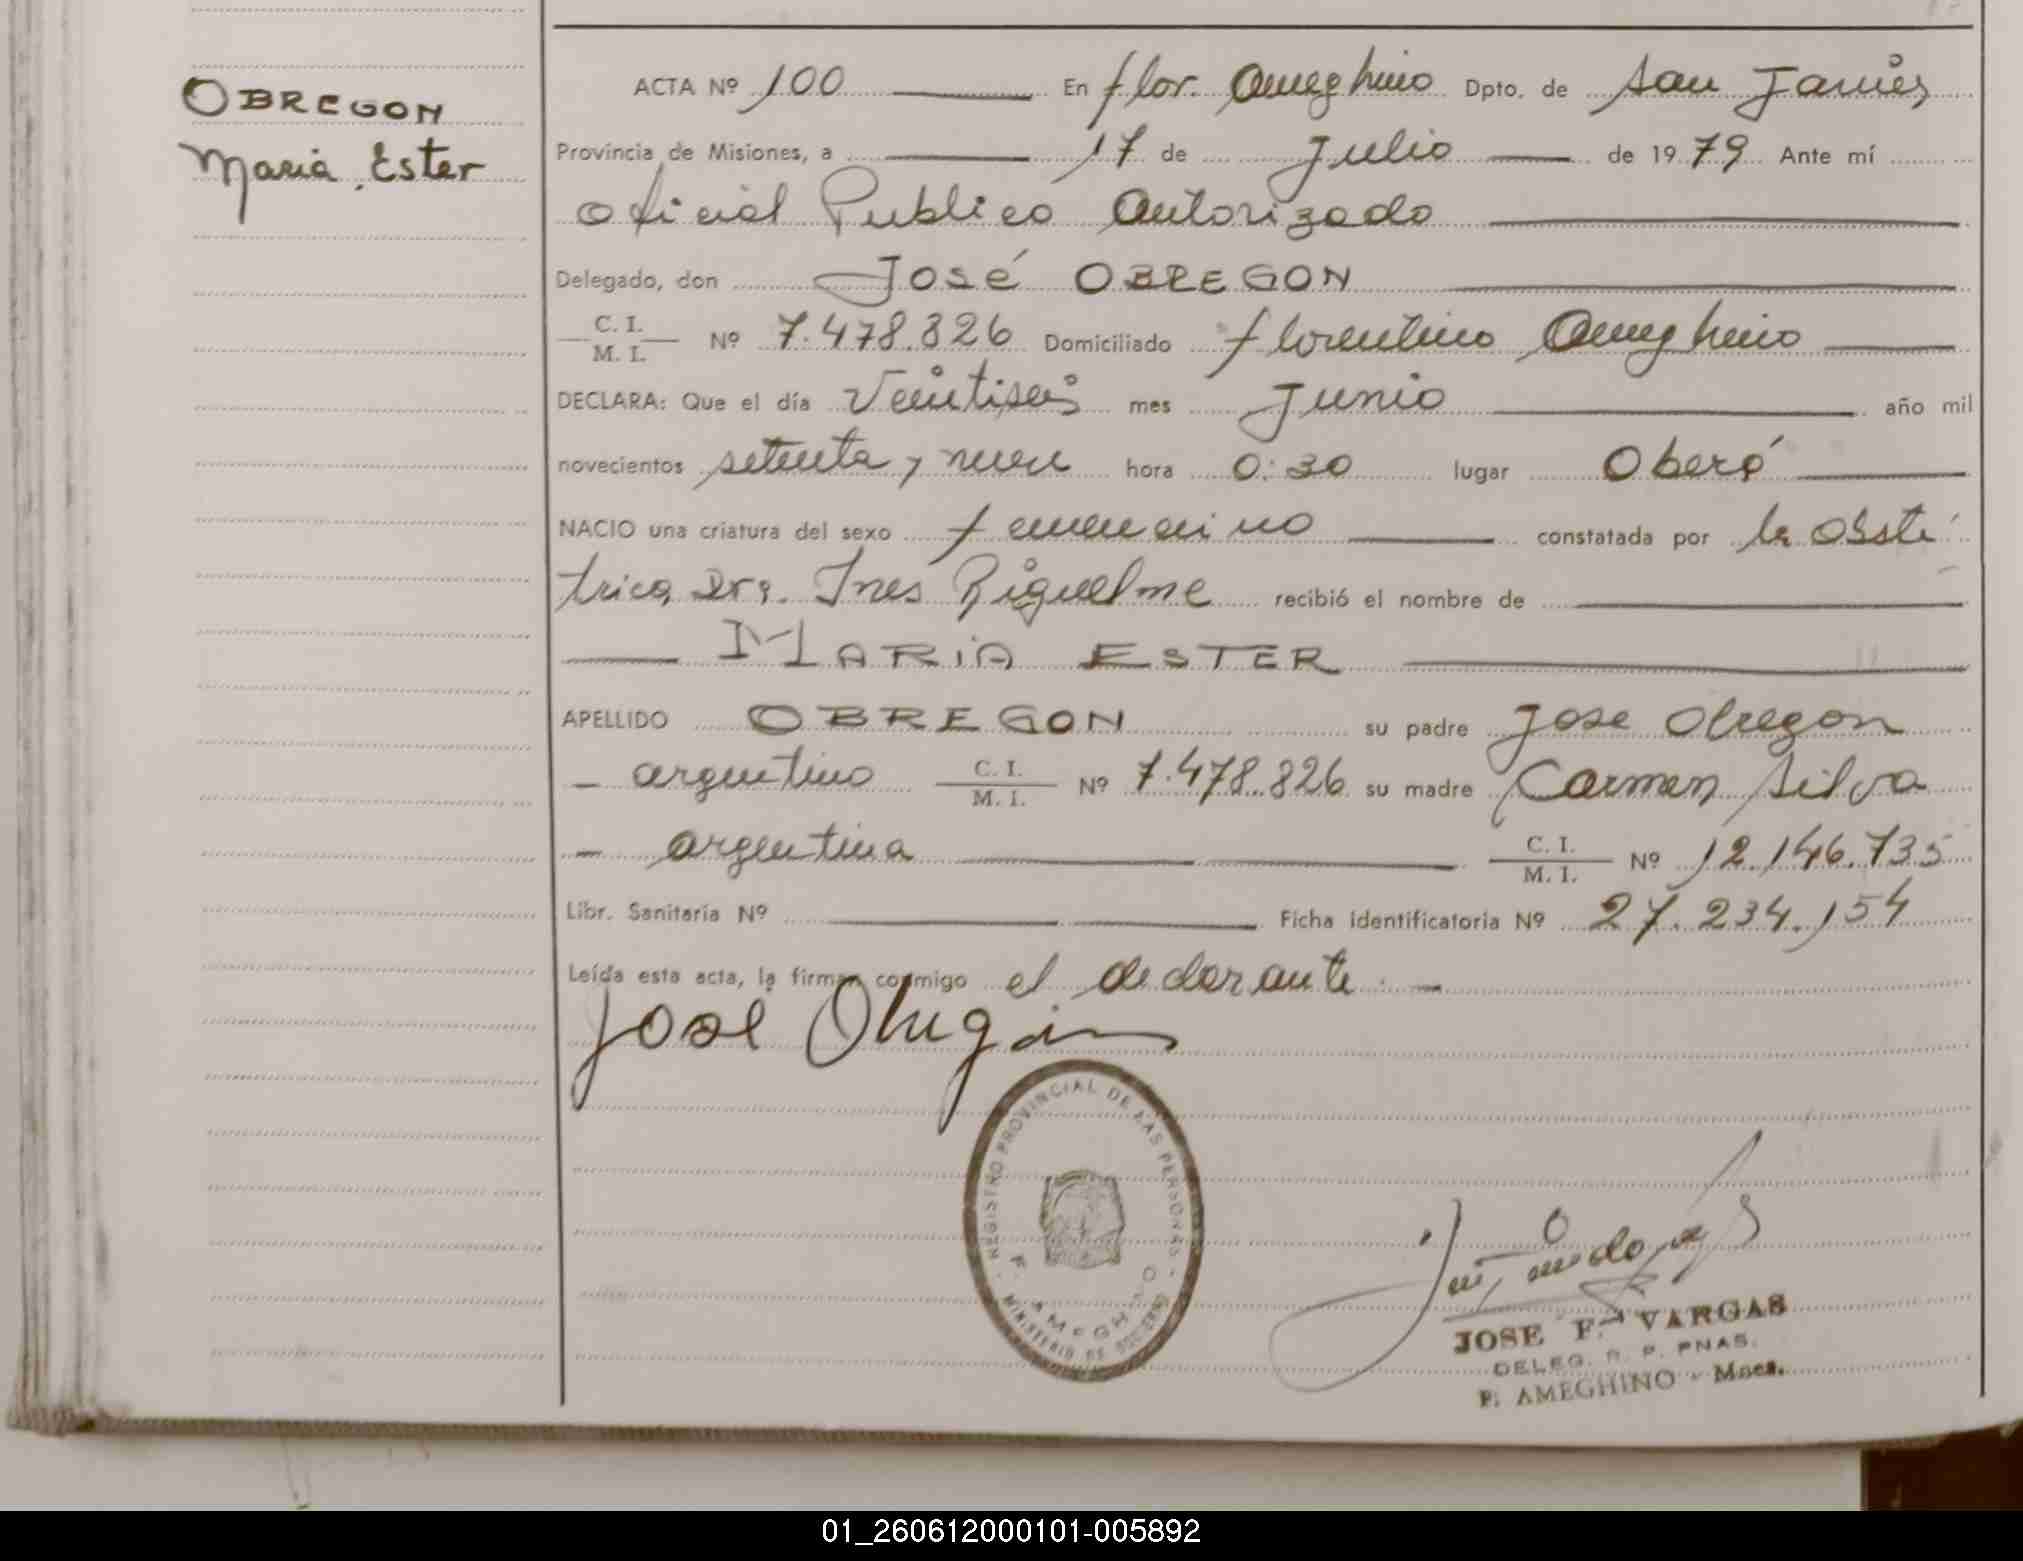 OBREGON
Maria Ester
ACTA Nº 100 En Flor. Ameghino Dpto. de San Javier
Provincia de Misiones, a 17 de Julio de 1979 Ante mí
Oficial Publico Autorizado
Delegado, don José OBREGON
C. I.
M. I. Nº 7.478.826 Domiciliado Florentino Ameghino
DECLARA: Que el día Veintiseis mes Junio año mil
novecientos setenta y nueve hora 0:30 lugar Oberá
NACIO una criatura del sexo femenino constatada por la Obsté
trica Dra. Ines Riquelme recibió el nombre de
MARiA ESTER
APELLIDO OBREGON su padre Jose Obregon
argentino C. I.
M. I. Nº 7.478.826 su madre Carmen Silva
argentina C. I.
M. I. Nº 12.146.735
Libr. Sanitaria Nº Ficha identificatoria Nº 27.234.154
Leída esta acta, la firman conmigo el declarante.
Jose Obregon
REGISTRO PROVINCIAL DE LAS PERSONAS
F. AMEGHINO
MINISTERIO DE GOBIERNO
JOSE F. VARGAS
DELEG. R. P. PNAS.
F. AMEGHINO - Mnes.
01_260612000101-005892